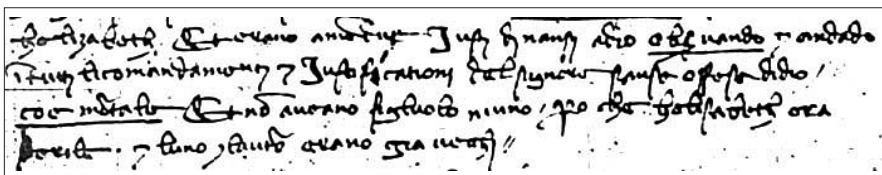 helizabeth Et erano ambedue Iusti dinanzi adio obseruando ⁊ andado
ītutti licomandamenti ⁊ Iustificationi del signore sanse offese didio /
coe mortale Et nō aueano figluolo niuno / po che helisabeth era
sterile · ⁊ luno ⁊ laltro erano gia uechi //